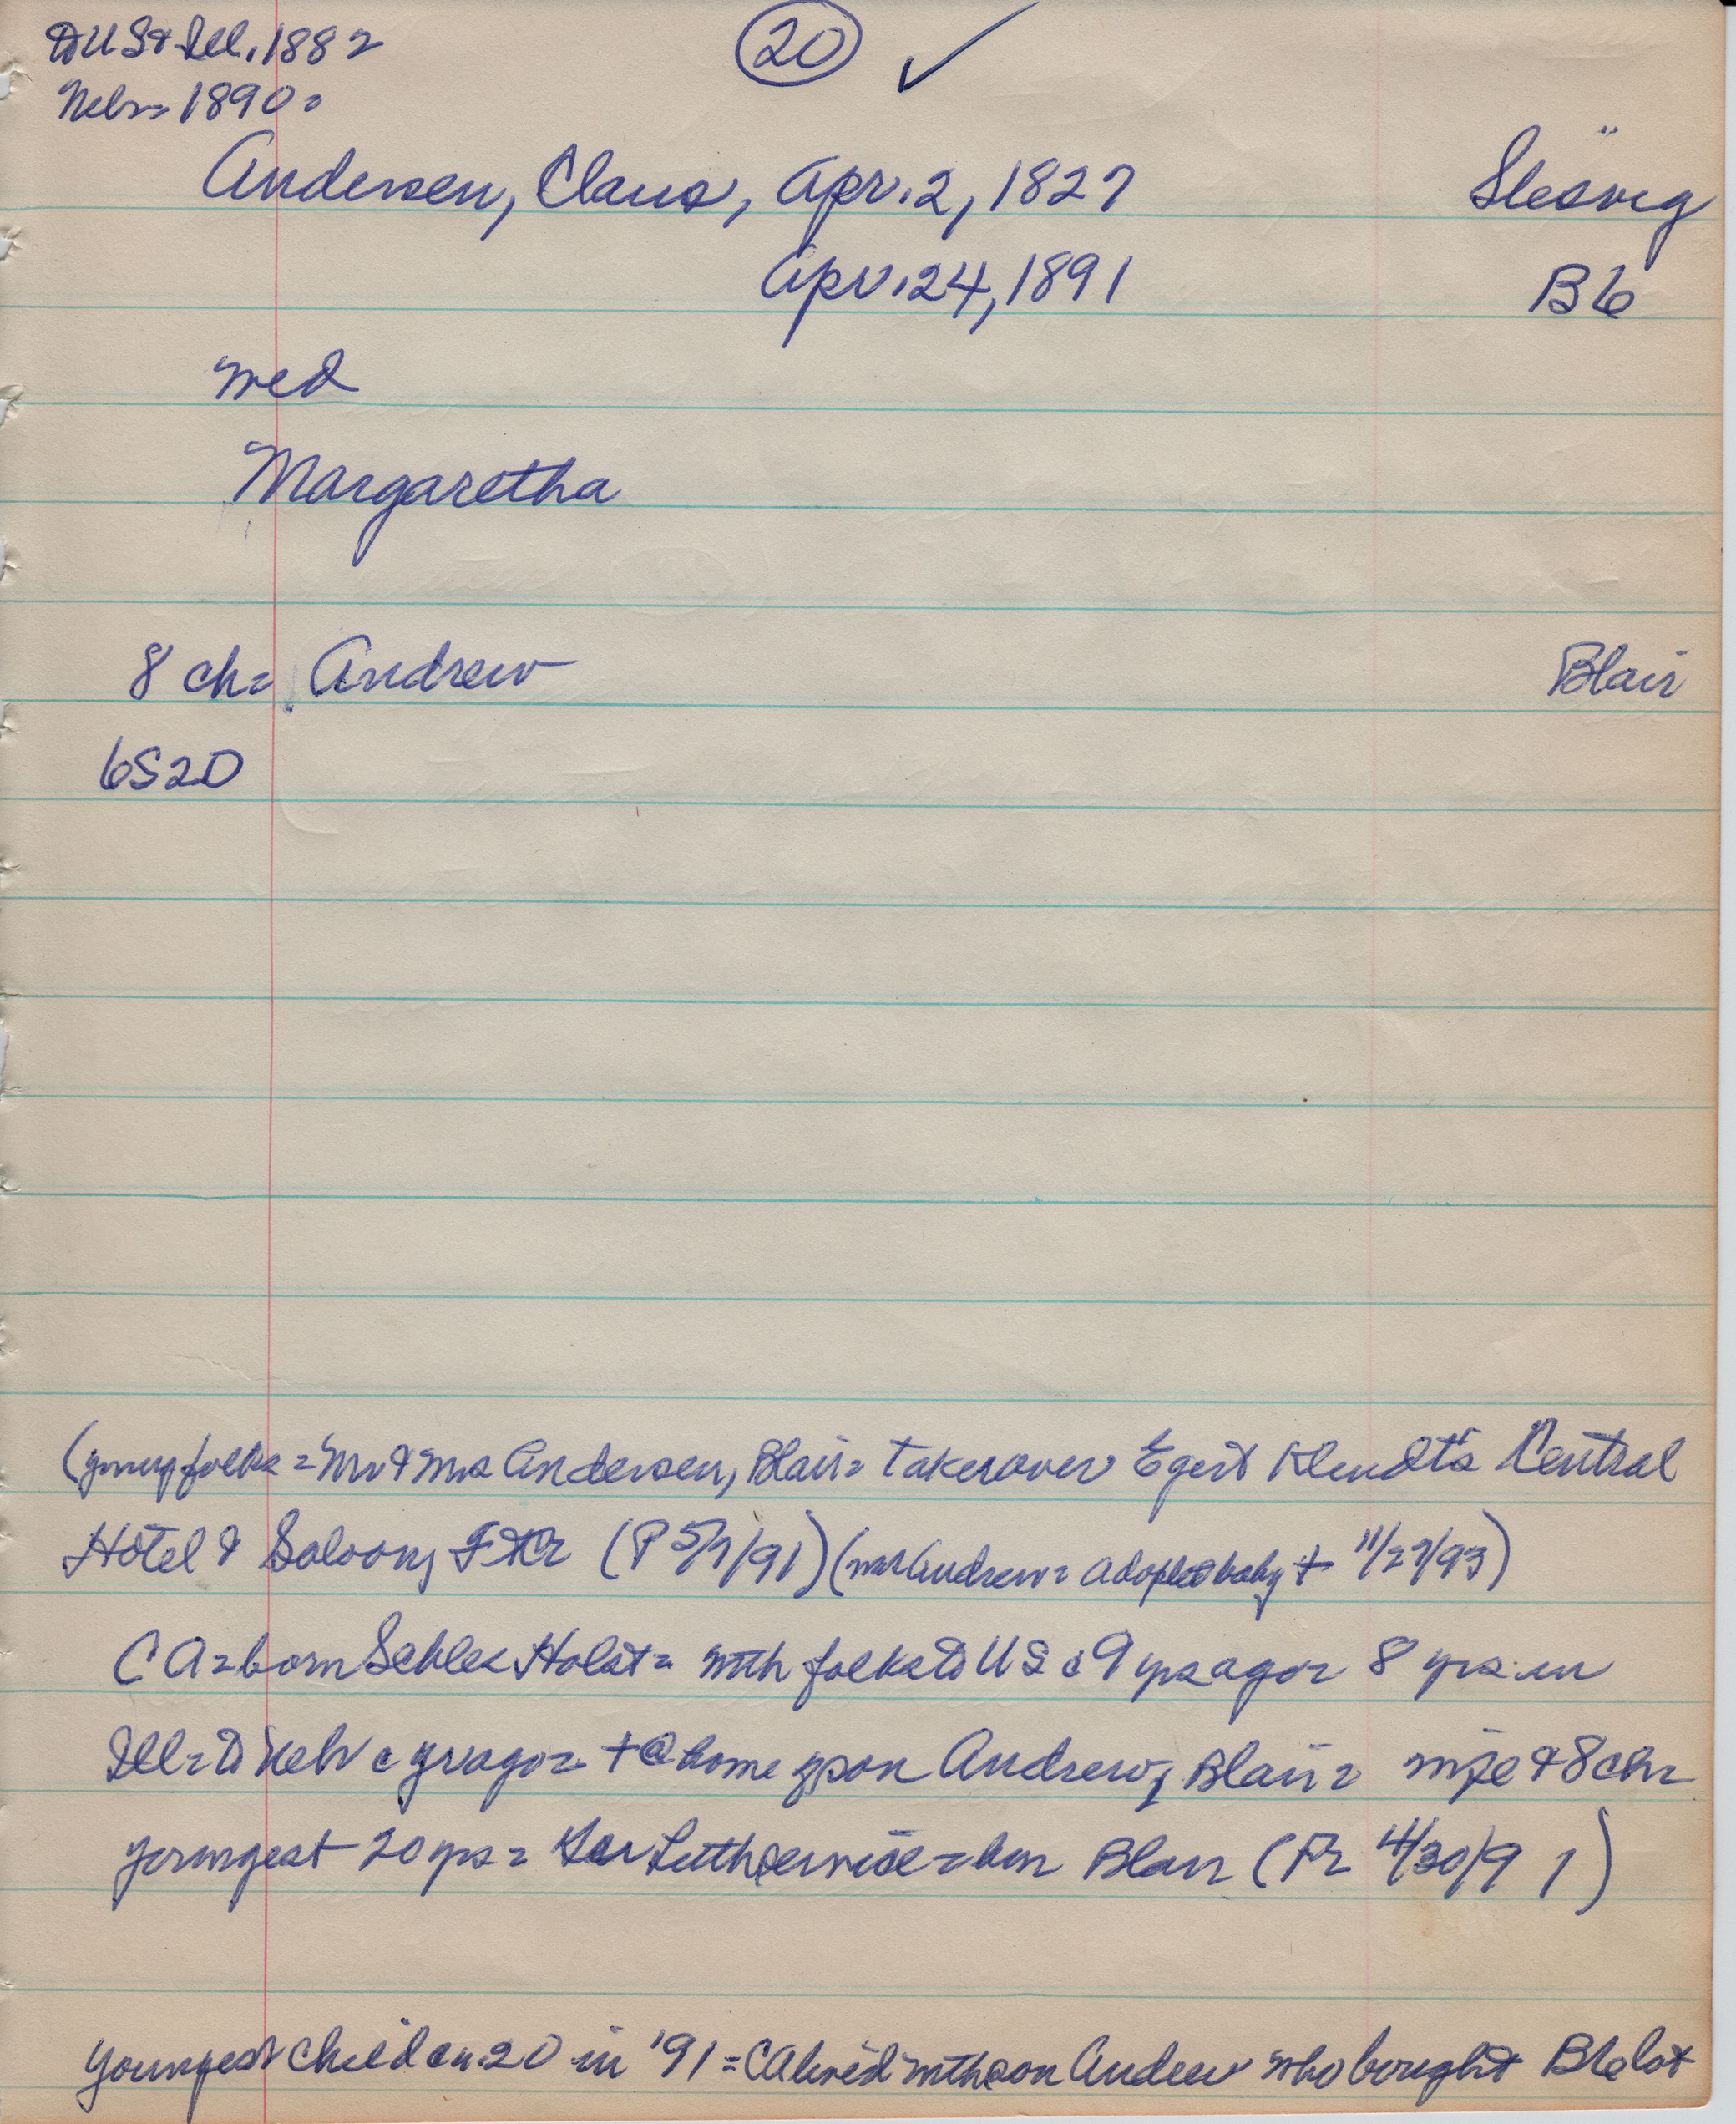 to US & Ill. 1882
Nebr= 1890=
20 ✓
Andersen, Claus, Apr. 2, 1827 Slesvig
Apr. 24, 1891 B6
med
Margaretha
8 ch= Andrew Blair
6S2D
(young folks = Mr & Mrs Andersen, Blair= take over Egert Klendt's Central
Hotel & Saloon, (P 5/7/91) (Mr Andrew= adopted baby + 11/27/93)
CA=born Schles Holst= with folks to US c 9 yrs ago= 8 yrs in
Ill=to Nebr c yr ago= + @ home of son Andrew, Blair= wife & 8 ch=
youngest 20 yrs= Luth service = bur Blair (4/30/91)
youngest child cn 20 in '91 = CA lived with son Andrew who bought B6 lot